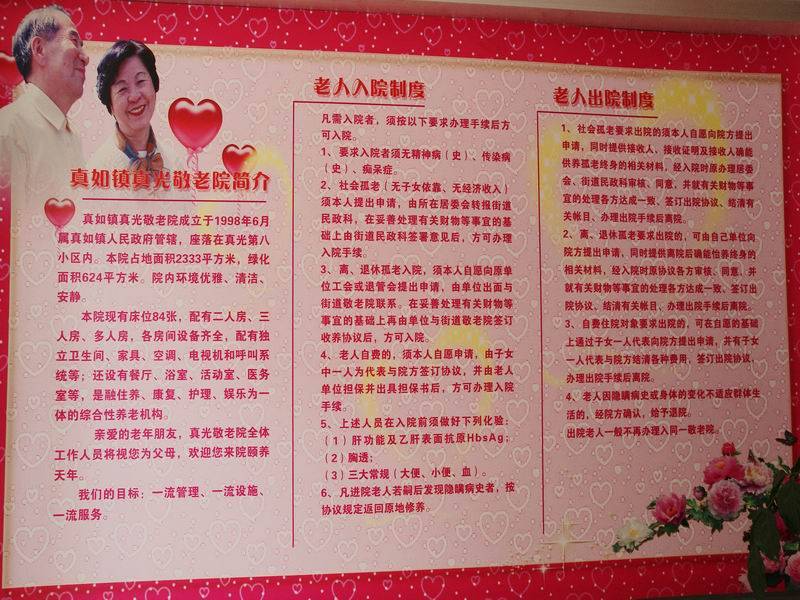 真如镇真光敬老院简介
真如镇真光敬老院成立于1998年6月
属真如镇人民政府管辖，座落在真光第八
小区内。本院占地面积2333平方米，绿化
面积624平方米。院内环境优雅、清洁、
安静。
本院现有床位84张，配有二人房、三
人房、多人房，各房间设备齐全，配有独
立卫生间、家具、空调、电视机和呼叫系
统等；还设有餐厅、浴室、活动室、医务
室等，是融住养、康复、护理、娱乐为一
体的综合性养老机构。
亲爱的老年朋友，真光敬老院全体
工作人员将视您为父母，欢迎您来院颐养
天年。
我们的目标：一流管理、一流设施、
一流服务。
老人入院制度
凡需入院者，须按以下要求办理手续后方
可入院。
1、要求入院者须无精神病（史）、传染病
（史）、痴呆症。
2、社会孤老（无子女依靠、无经济收入）
须本人提出申请，由所在居委会转报街道
民政科，在妥善处理有关财物等事宜的基
础上由街道民政科签署意见后，方可办理
入院手续。
3、离、退休孤老入院，须本人自愿向原单
位工会或退管会提出申请，由单位出面与
街道敬老院联系。在妥善处理有关财物等
事宜的基础上再由单位与街道敬老院签订
收养协议后，方可入院。
4、老人自费的，须本人自愿申请，由子女
中一人为代表与院方签订协议，并由老人
单位担保并出具担保书后，方可办理入院
手续。
5、上述人员在入院前须做好下列化验：
（1）肝功能及乙肝表面抗原HbsAg；
（2）胸透；
（3）三大常规（大便、小便、血）。
6、凡进院老人若嗣后发现隐瞒病史者，按
协议规定返回原地修养。
老人出院制度
1、社会孤老要求出院的须本人自愿向院方提出
申请，同时提供接收人，接收证明及接收人确能
供养孤老终身的相关材料，经入院时原办理居委
会、街道民政科审核、同意，并就有关财物等事
宜的处理各方达成一致、签订出院协议、结清有
关帐目、办理出院手续后离院。
2、离、退休孤老要求出院的，可由自己单位向
院方提出申请，同时提供离院后确能怡养终身的
相关材料，经入院时原协议各方审核、同意、并
就有关财物等事宜的处理各方达成一致、签订出
院协议、结清有关帐目、办理出院手续后离院。
3、自费住院对象要求出院的，可在自愿的基础
上通过子女一人代表向院方提出申请，并有子女
一人代表与院方结清各种费用，签订出院协议，
办理出院手续后离院。
4、老人因隐瞒病史或身体的变化不适应群体生
活的，经院方确认，给予退院。
出院老人一般不再办理入同一敬老院。